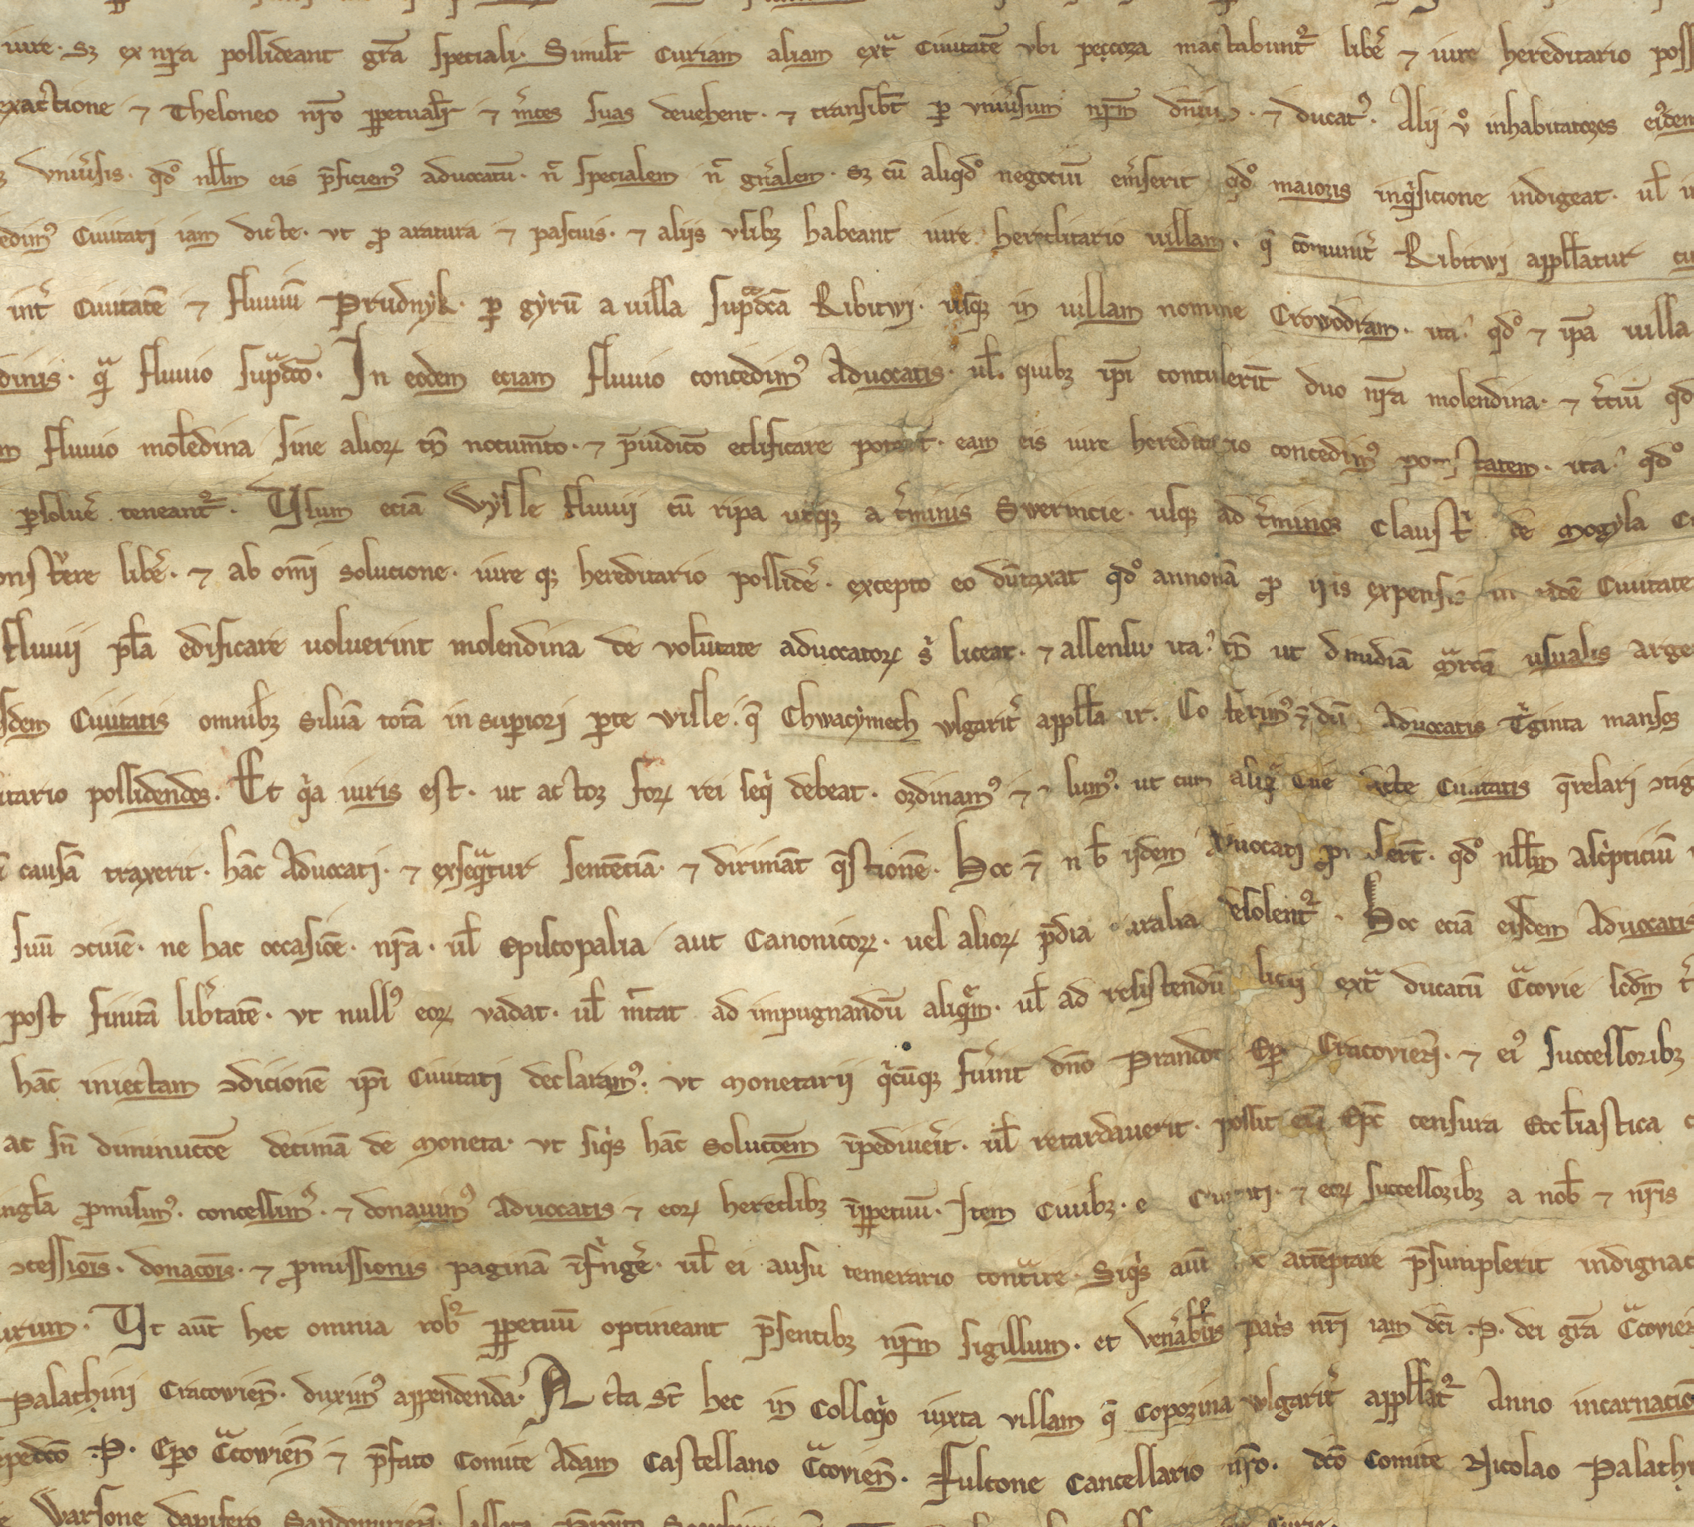 iure. sz ex nr̄a possideant gr̄a speciali. Similr̄ Curiam aliam ext̃ Ciuitatē vbi peccora mactabunt᷑ libē ⁊ iure hereditario poss
exactione ⁊ Theloneo nr̄o ꝑpetualr̄ ⁊ m̄ces suas deuehent. ⁊ transibūt ꝑ vniu̓sum nr̄m ⁊ ducatꝰ. Alii v̊ inhabitatores eiꝰdem
vniu̓sis. qd̊ nll̄m eis p̄ficiemꝰ aduocatū. n̄ specialem n̄ gn̄alem. sz cū aliqd̊ negociū em̓serit qd̊ maioris inq̓sicione indigeat. ul̄
edimꝰ Ciuitati iam dicte. vt ꝓ aratura ⁊ pascuis. ⁊ aliis vsibꝫ habeant iure hereditario uillam. q̄ cōmunit̓ Ribitwi appll̄atur
int̓ Ciuitatē ⁊ fluuiū Prudnyk. ꝑ gyrū a uilla sup̃dc̄a Ribitwi. usqꝫ in uillam nomine Crowodram. ita. qd̊ ⁊ ip̄a uilla
dinis. q̃ fluuio sup̃dc̄o. In eodem eciam fluuio concedimꝰ Aduocatis. ul̄. quibꝫ ip̄i contulerīt duo nr̄a molendina. ⁊ t̓ciū qd
m fluuio molēdina sine alioꝝ tn̄ nocum̄to. ⁊ p̄iudic̄o edificare eam eis iure hereditario concedimꝰ potestatem. ita. qd̊
ꝑsolue̓ teneant᷑. Usum eciā Wysle fluuii cū ripa utqꝫ a t̓minis Swerincie. usqꝫ ad t̓minos Claust̓ de Mogyla
onst̓ere libē. ⁊ ab om̄i solucione. iure qꝫ hereditario posside̓. excepto eo dūtaxat qd̊ annonā ꝓ n̄is expensis in eadē Ciuitate
fluuii pl̄a edificare uoluerint molendina de volūtate aduocatoꝝ s̓ liceat. ⁊ assensu. ita. tn̄ ut dimidiā m̃rcā usualis arge
dem Ciuitatis omnibꝫ siluā totā in superiori ꝑte ville. q̄ Chwacymech vlgarit̓ appll̄atur. Aduocatis T̓ginta mansos
itario possidendos. Et q̓a iuris est. ut actor foꝝ rei seq̓ debeat. ordinamꝰ ⁊ ut cum Ciuitatis q̄relari
causā traxerit. hāc Aduocati. ⁊ exseq̃tur sentēciā. ⁊ dirimāt q̄stionē. Hoc ⁊̄ nb̄ ijdem Aduocati ꝓmiserūt. qd̊ nll̄m asc̓pticiū
suū ↄciuē. ne hac occasiōe. nr̄a. ul̄ Episcopalia aut Canonicoꝝ. uel alioꝝ p̄dia desolent᷑. Hoc eciā eisdem Aduocatis
post finitā lib̓tatē. vt nullꝰ eoꝝ vadat. ul̄ mittat ad impugnandū aliq̃m. ul̄ ad resistendū ext̃ ducatū C̃covie scd̄m
hāc iniectam ↄdicionē ip̄i Ciuitati declaramꝰ. vt Monetarii q̓cūqꝫ fu̓int dn̄o Prandote Ep̄o Cracovien̄. ⁊ eiꝰ successoribꝫ
ac sn̄ diminuc̄cōe decimā de Moneta. vt siq̓s hāc Soluc̄cōem īpediue̓it. ul̄ retardauerit. possit eū Ep̄c censura Eccl̄iastica
ꝓmisimꝰ. concessimꝰ. ⁊ donauimꝰ Aduocatis ⁊ eoꝝ heredibꝫ īꝑpetuū. Item Ciuibꝫ. ⁊ eoꝝ successoribꝫ a nob̄ ⁊ nr̄is
ↄcessiōis. donac̄ois. ⁊ ꝓmissionis paginā īf̓nge̓. ul̄ ei ausu temerario cont̃ire. Siq̓s aūt hoc attēptare p̄sumpserit indignac
urum. Ut aūt hec omnia rob᷑ ꝑpetuū optineant p̄sentibꝫ nr̄m sigillum. et Ven̄abil̄is pat̓s nr̄i iam dc̄i .P. dei gr̄a C̃covien
Palathini Cracovien̄. duximꝰ appendenda. Acta sūt hec in Colloq̓o iuxta villam q̄ Copozina vlgarit̓ appll̄at᷑ Anno incarnacio
.P. Ep̄o C̃cowien̄ ⁊ p̄fato Comite Adam Castellano C̃covien̄. Fulcone Cancellario nr̄o. dc̄o Comite Nicolao Palathi
Warsone dapifero Sandomirien̄.